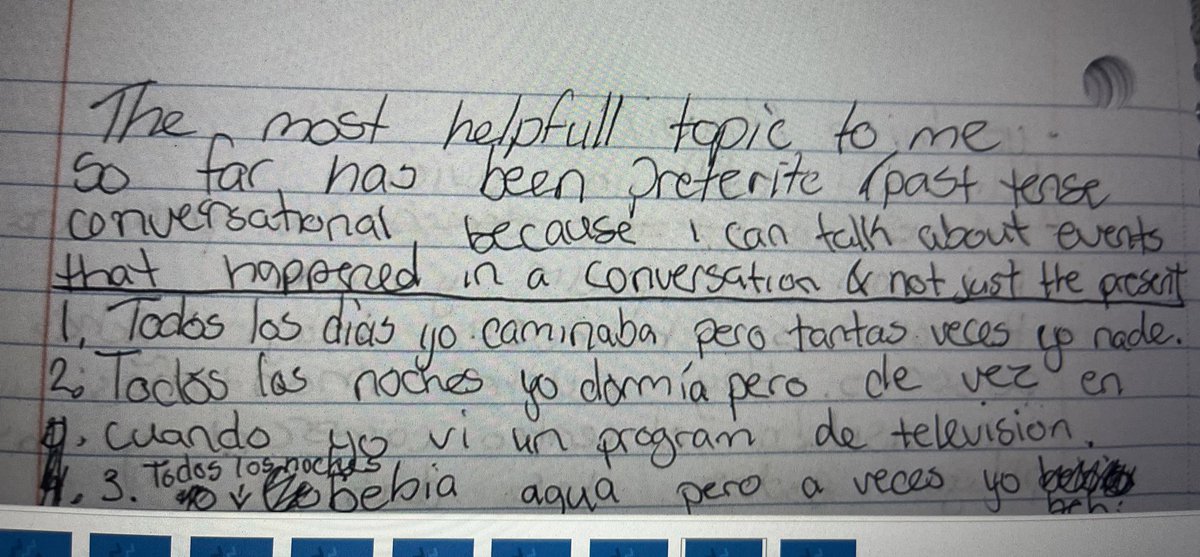 The most helpfull topic to me
so far, has been preterite (past tense
conversational, because i can talk about events
that happened in a conversation & not just the present
1. Todos los dias yo caminaba pero tantas veces yo nade.
2. Todos las noches yo dormía pero de vez en
cuando yo vi un program de television.
3. Todos los noches
yo bebia agua pero a veces yo